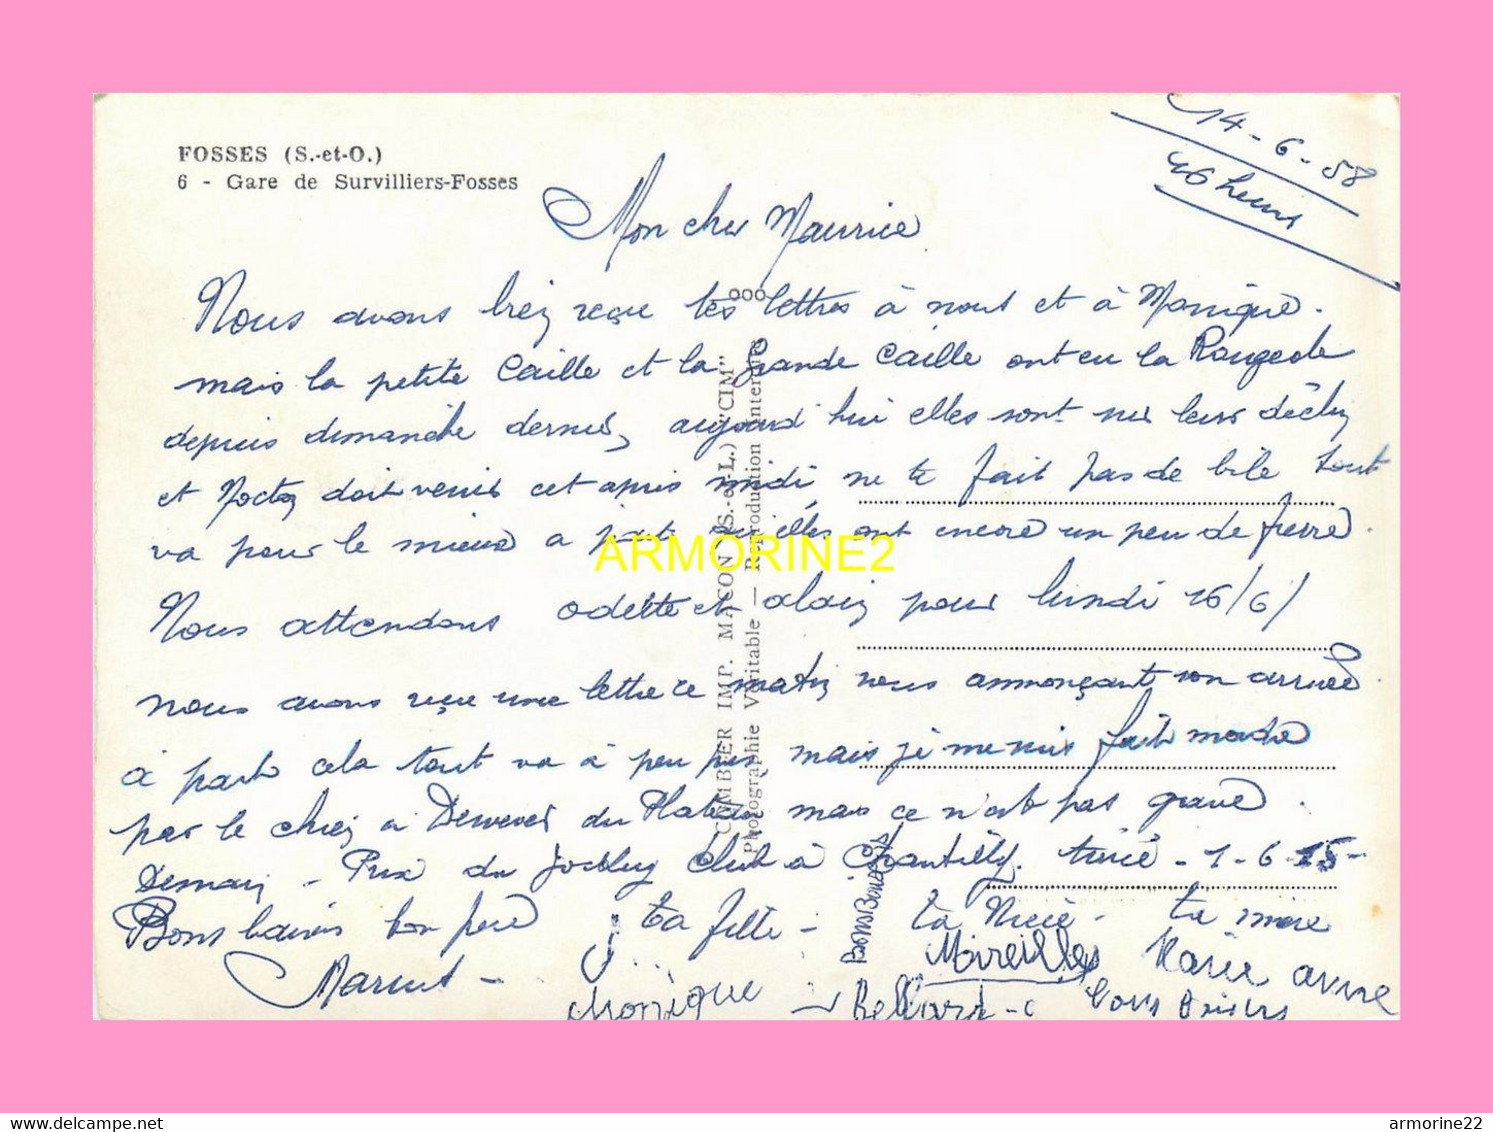 FOSSES (S.-et-O.)
6 - Gare de Survilliers-Fosses
14-6-58
16 heures
Mon cher Maurice
Nous avons bien reçue tes lettres à nous et à Monique.
mais la petite Caille et la Grande Caille ont eu la Rougeole
depuis dimanche dernier, aujourd hui elles sont sur leur déclin
et doit venir cet apres midi, ne te fait pas de bile tout
va pour le mieux a part qu'elles ont encore un peu de fievre.
Nous attendons odette et alain pour lundi 16/6/
nous avons reçue une lettre ce matin nous annonçant son arrivée
à part cela tout va à peu pres mais je me suis fait mordre
par le chien a du Plateau mais ce n'est pas grave.
Demain - Prix du Jockey Club à Chantilly. tiercé - 1-6-15-
Bons baisers ton père ta fille - ta Niece - ta mère
Marcel - Monique Bons Bons Mireille Marie anne
Bellard - bons baisers
COMBIER IMP. MACON (S.-et-L.) "CIM"
Photographie Véritable — Reproduction interdite
ARMORINE2
https://www.delcampe.net
armorine22